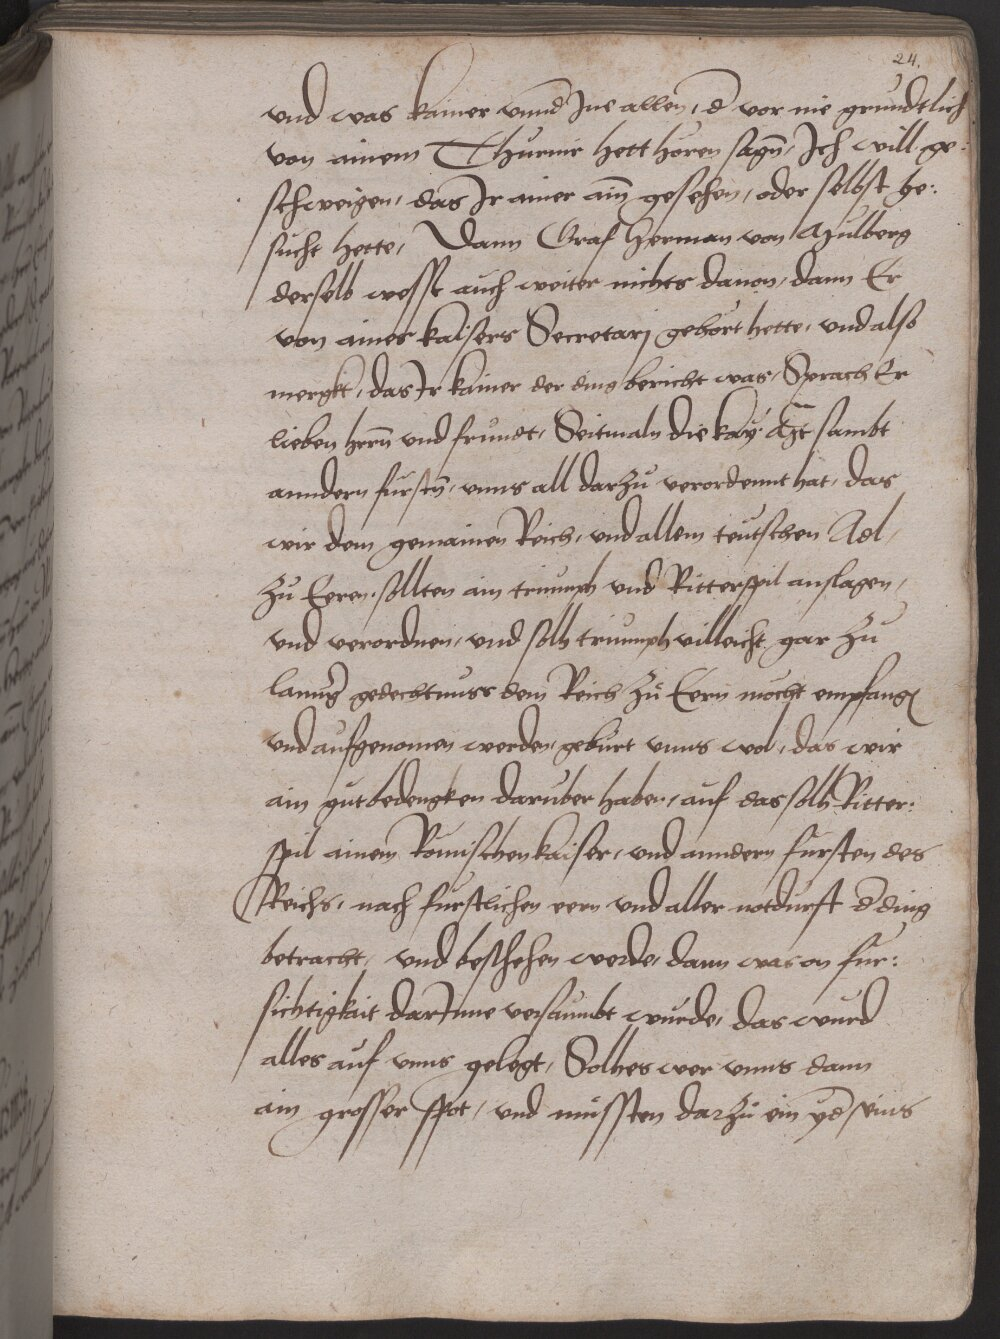 24.
vnd was kainer vnnd Ine allen, d vor nie grundtlich
von ainem Thurnir hett horen sagn, Ich will ge=
schweigen, das Ir ainer ain gesehen, oder selbst be=
sucht hette, Dann Graf Herman von Mulberg
derselb wesst auch weiter nichts dauon, dann Er
von aines kaisers Secretarj gehört hette, vnd also
mergkt, das Ir kainer der ding bericht was, Sprach Er
lieben hern vnd frundt, Seitmaln die kay. Mt. sambt
anndern fursten, vnns all darzu verordennt hat, das
wir dem gemainen Reich, vnd allem teutschen Adl,
zu Eeren, sollten ain triumph vnd Ritterspil anslagen,
vnd verordnen, vnd solh triumph villeicht gar zu
lannger gedechtnuss dem Reich zu Eern möcht empfangen
vnd aufgenomen werden, geburt vnns wol, das wir
ain gut bedengken daruber haben, auf das solh Ritter=
spil ainem Romischen kaiser, vnd anndern fursten des
Reichs, nach furstlichen eern vnd aller notdurft d ding
betracht, vnd beschehen werde, dann was on fur=
sichtigkait darInne versaumbt wurde, das wurd
alles auf vnns gelegt, Solhes wer vnns dann
ain grosser spot, vnd müssten darzu ein yed seins